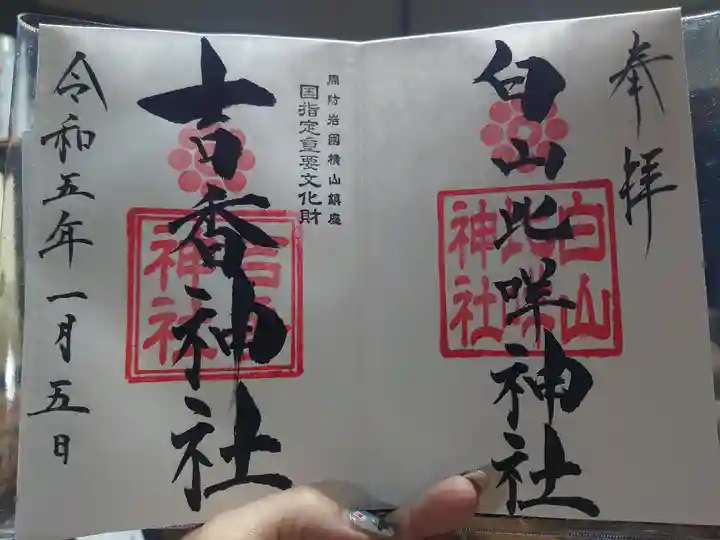 奉拝
白山比咩神社
白山比咩神社
周防岩國横山鎮座
国指定重要文化財
吉香神社
吉香神社
令和五年一月五日